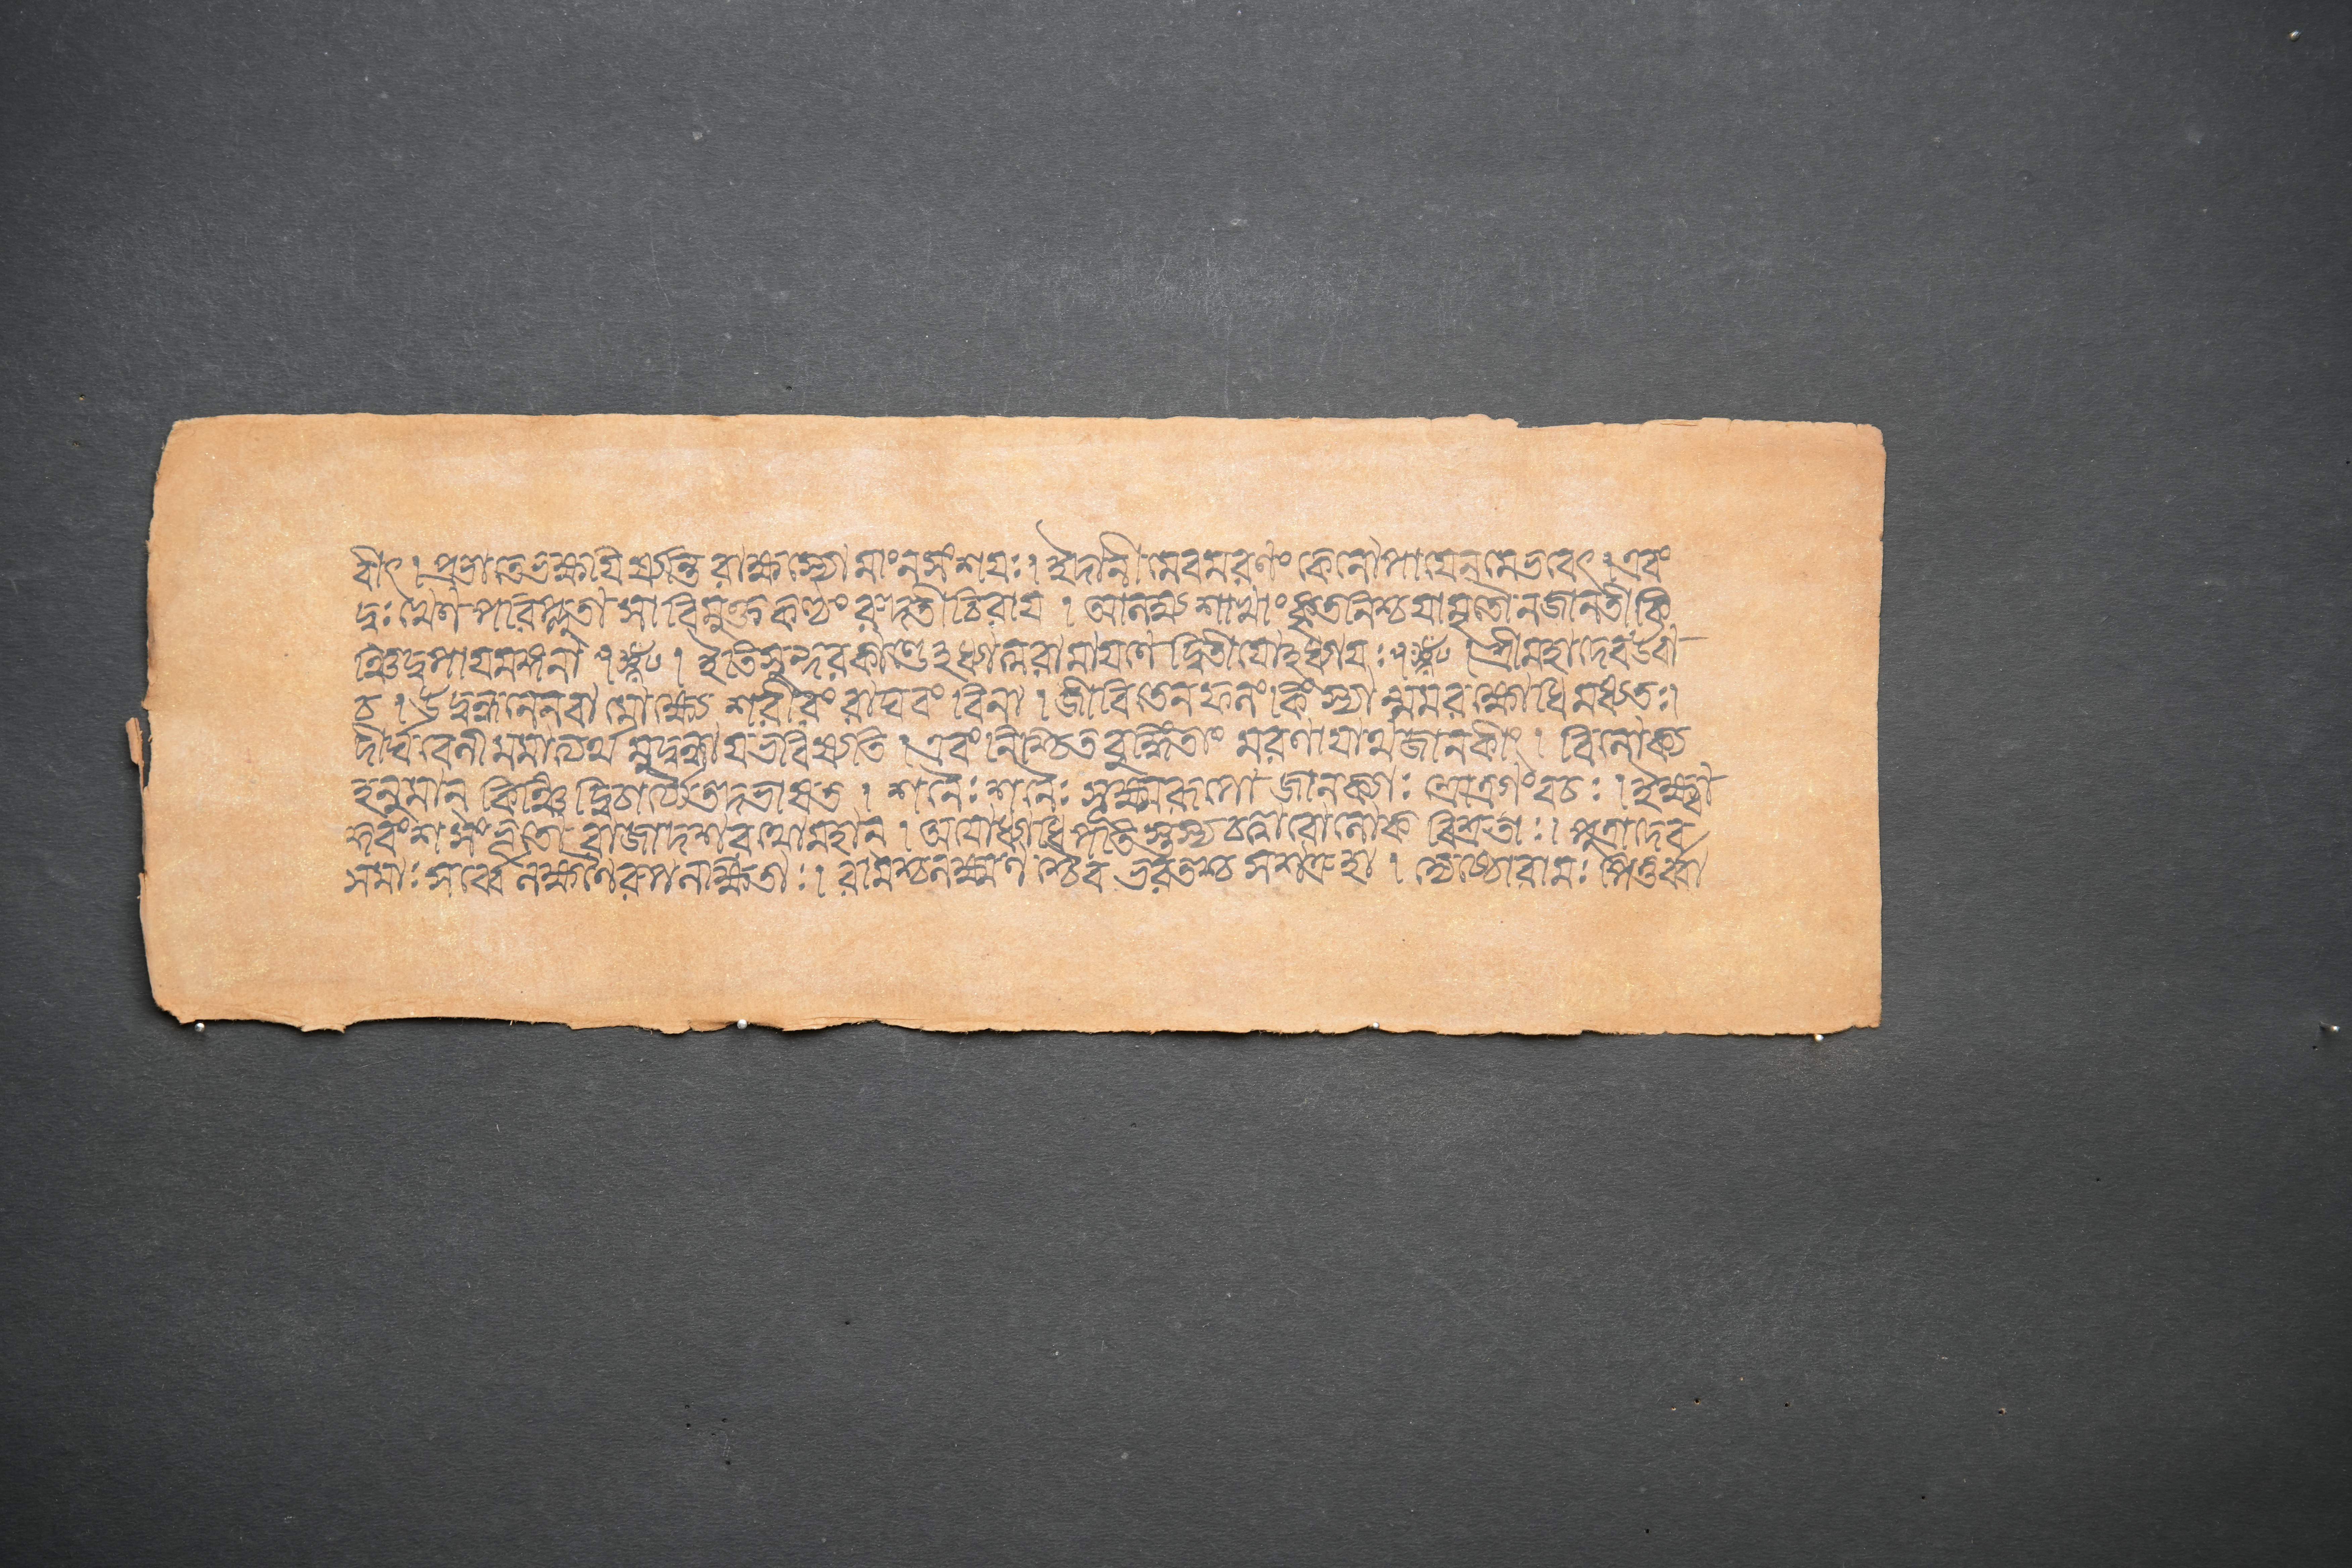 ব্রবীৎ। প্রভাতে ভক্ষযিষ্যন্তি রাক্ষস্যো মাং ন সংশযঃ। ইদানীমেব মরণং কেনোপাযেন মে ভবেৎ। এবং
দুঃখেণ পরিপ্লুতা সা বিমুক্তকণ্ঠং রুদতী চিরায। আলম্ব্য শাখাং কৃতনিশ্চযা মৃতৌ ন জানতী কি
ঞ্চিদুপাযমঙ্গনা। ইতি সুন্দরকাণ্ডেঽধ্যাত্মরামাযণে দ্বিতীযোঽধ্যাযঃ। শ্রীমহাদেব উবা
চ। উদ্বন্ধনেন বা মোক্ষ্যে শরীরং রাঘবং বিনা। জীবিতেন ফলং কিং স্যান্মম রক্ষোধিমধ্যতঃ।
দীর্ঘা বেনী মমাত্যর্থমুদ্বন্ধায ভবিষ্যতি। এবং নিশ্চিতবুদ্ধিং তাং মরণাযাথ জানকীং। বিলোক্য
হনুমান্ কিঞ্চিদ্বিচার্য্যৈতদভাষত। শনৈঃ শনৈঃ সূক্ষ্মরূপো জানক্যাঃ শ্রোত্রগং বচঃ। ইক্ষ্বা
কুবংশসংভূতো রাজা দশরথো মহান্। অযোধ্যাধিপতিস্তস্য চত্বারো লোকবিশ্রুতাঃ। পুত্রা দেব
সমাঃ সর্ব্বে লক্ষণৈরুপলক্ষিতাঃ। রামশ্চ লক্ষ্মণশ্চৈব ভরতশ্চ সশত্রুহা। জ্যেষ্ঠো রামঃ পিতুর্ব্বা